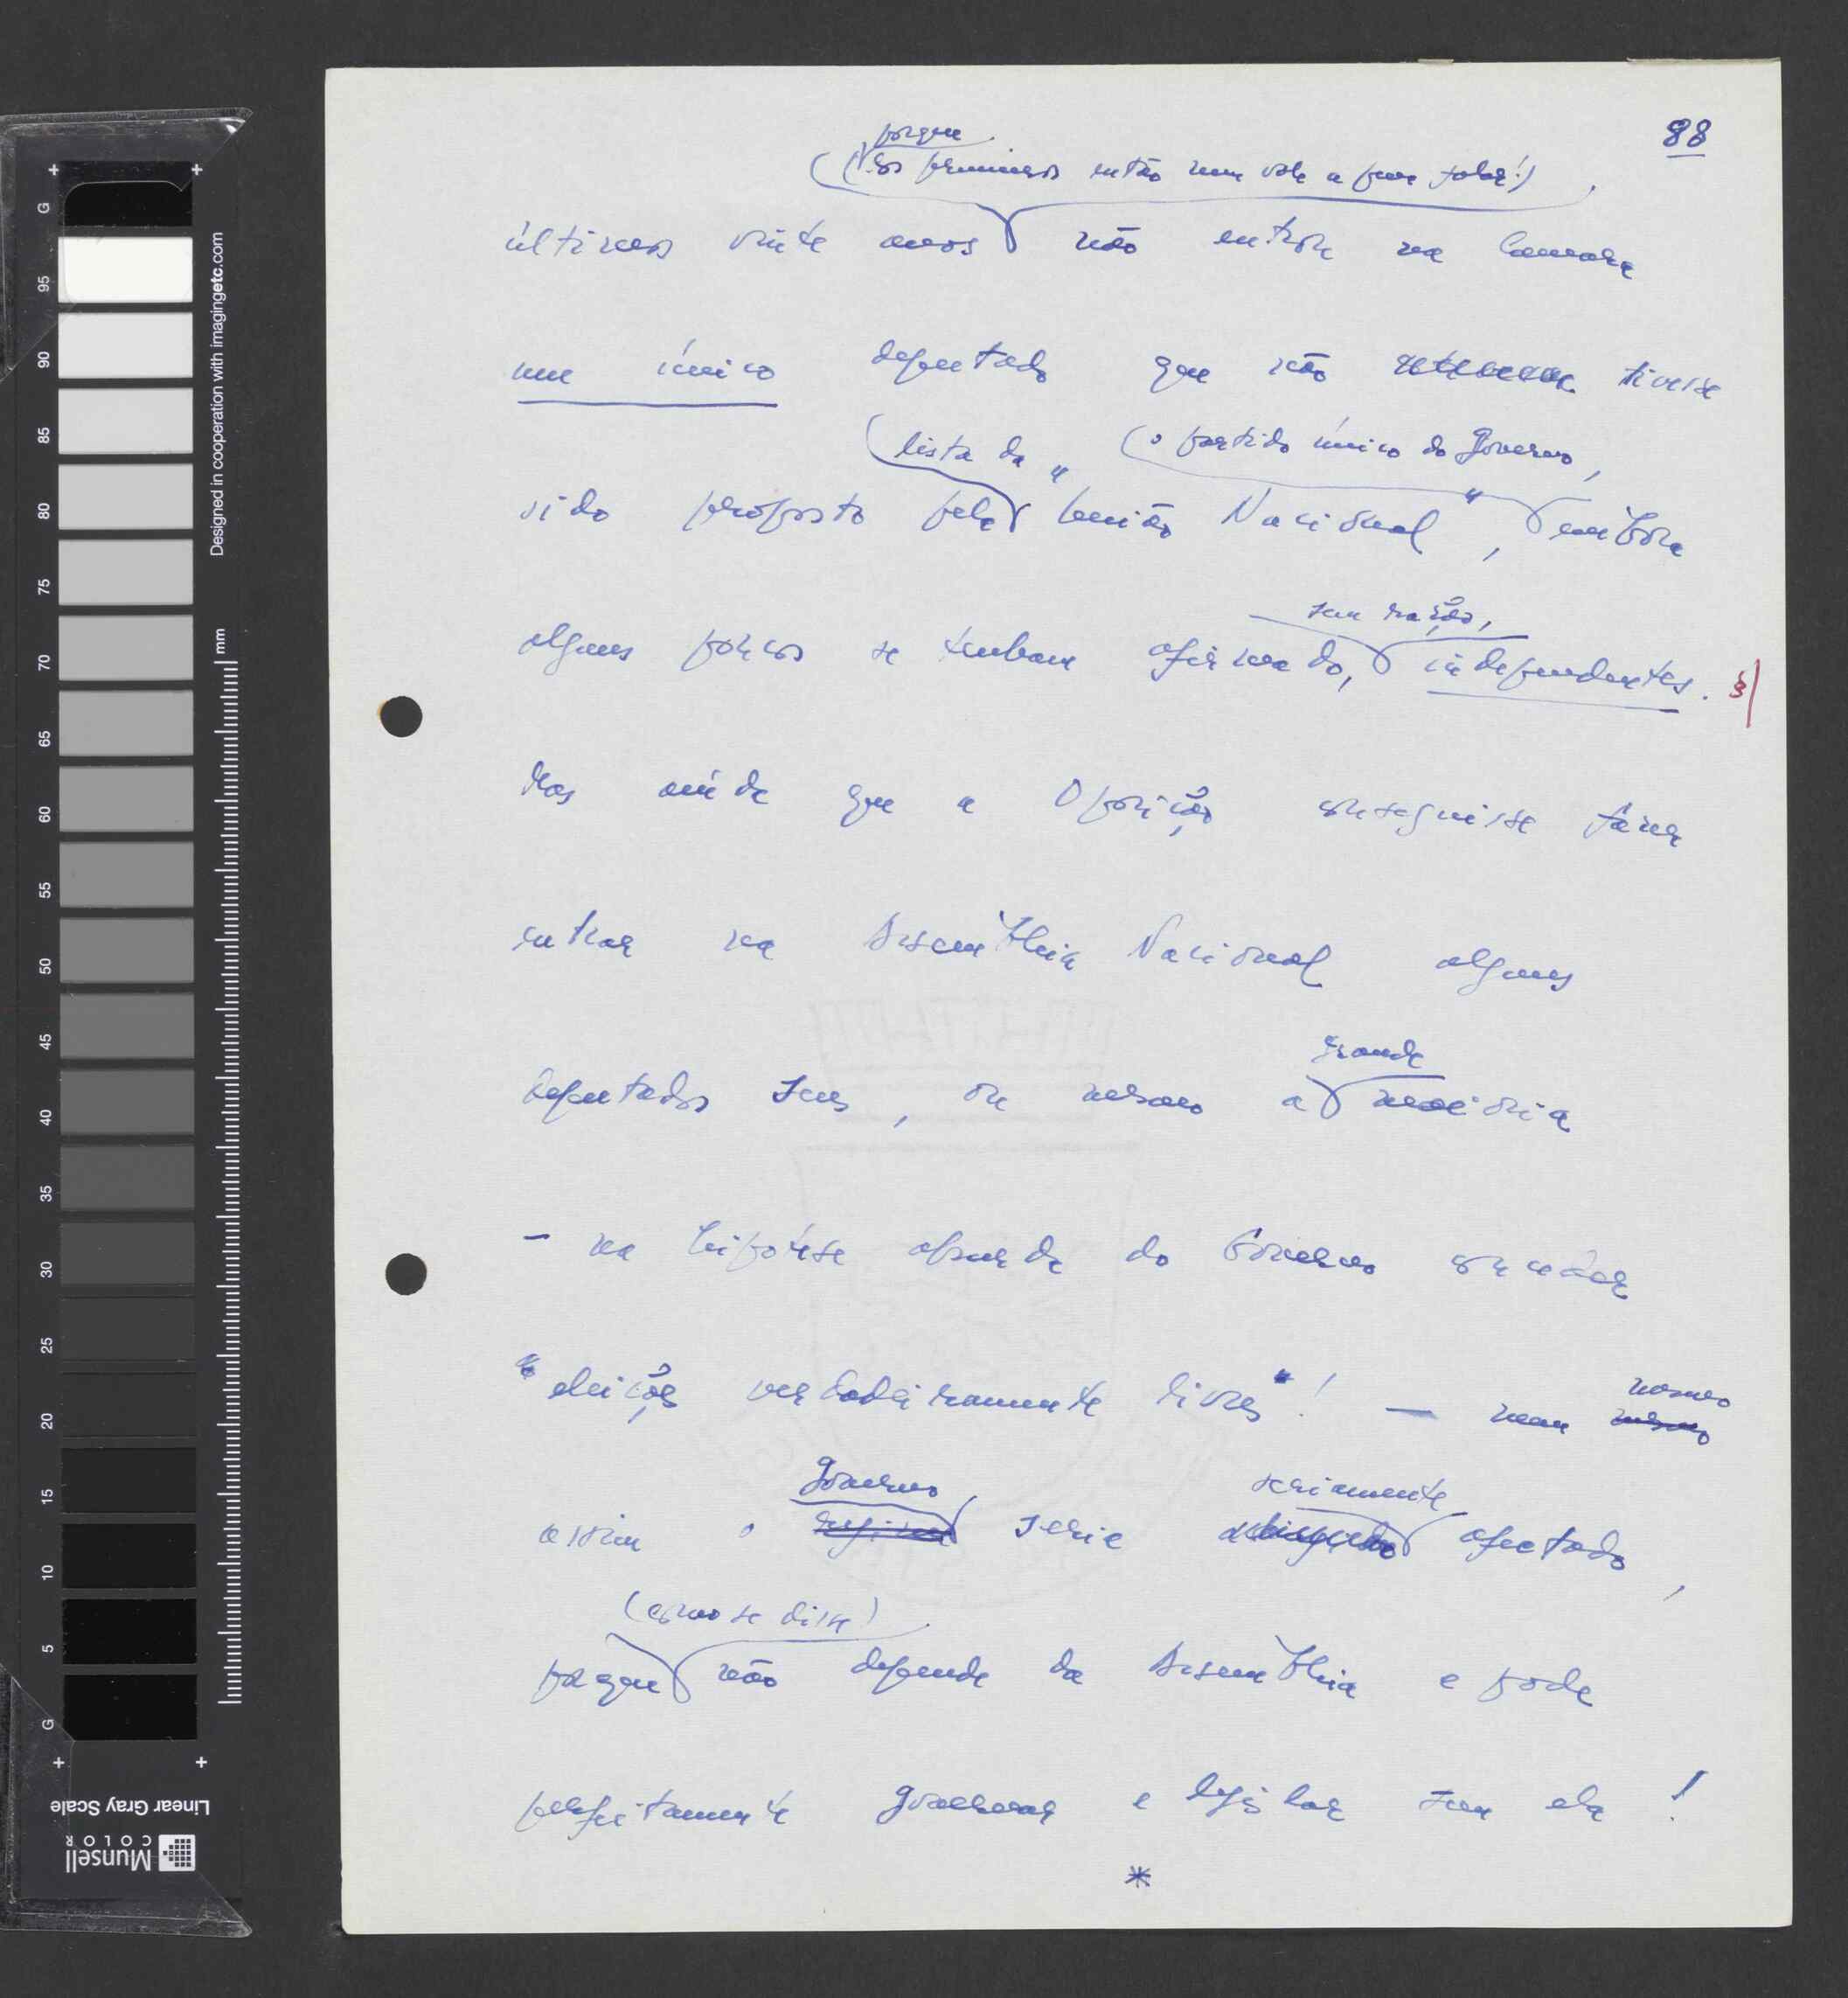 88
porque
(Nos primeiros então nem vale a pena falar!),
últimos vinte anos não entrou na Câmara
um único deputado que não tivesse
lista da " (o partido único do Governo,
sido proposto pela União Nacional", embora
sem razão,
alguns poucos se tenham afirmado, independentes. 3)
Mas ainda que a Oposição conseguisse fazer
entrar na Assembleia Nacional alguns
grande
deputados seus, ou mesmo a maioria
- na hipótese absurda do Governo conceder
"eleições verdadeiramente livres"! — nem mesmo
mesmo
Governo seriamente
assim o regime seria atingido afectado,
(como se disse)
porque não depende da Assembleia e pode
perfeitamente governar e legislar sem ela!
*
G
95
90
85
80
75
70
65
60
55
50
45
40
35
30
25
20
15
10
5
G
mm
Designed in cooperation with imagingetc.com
Linear Gray Scale
Munsell
COLOR